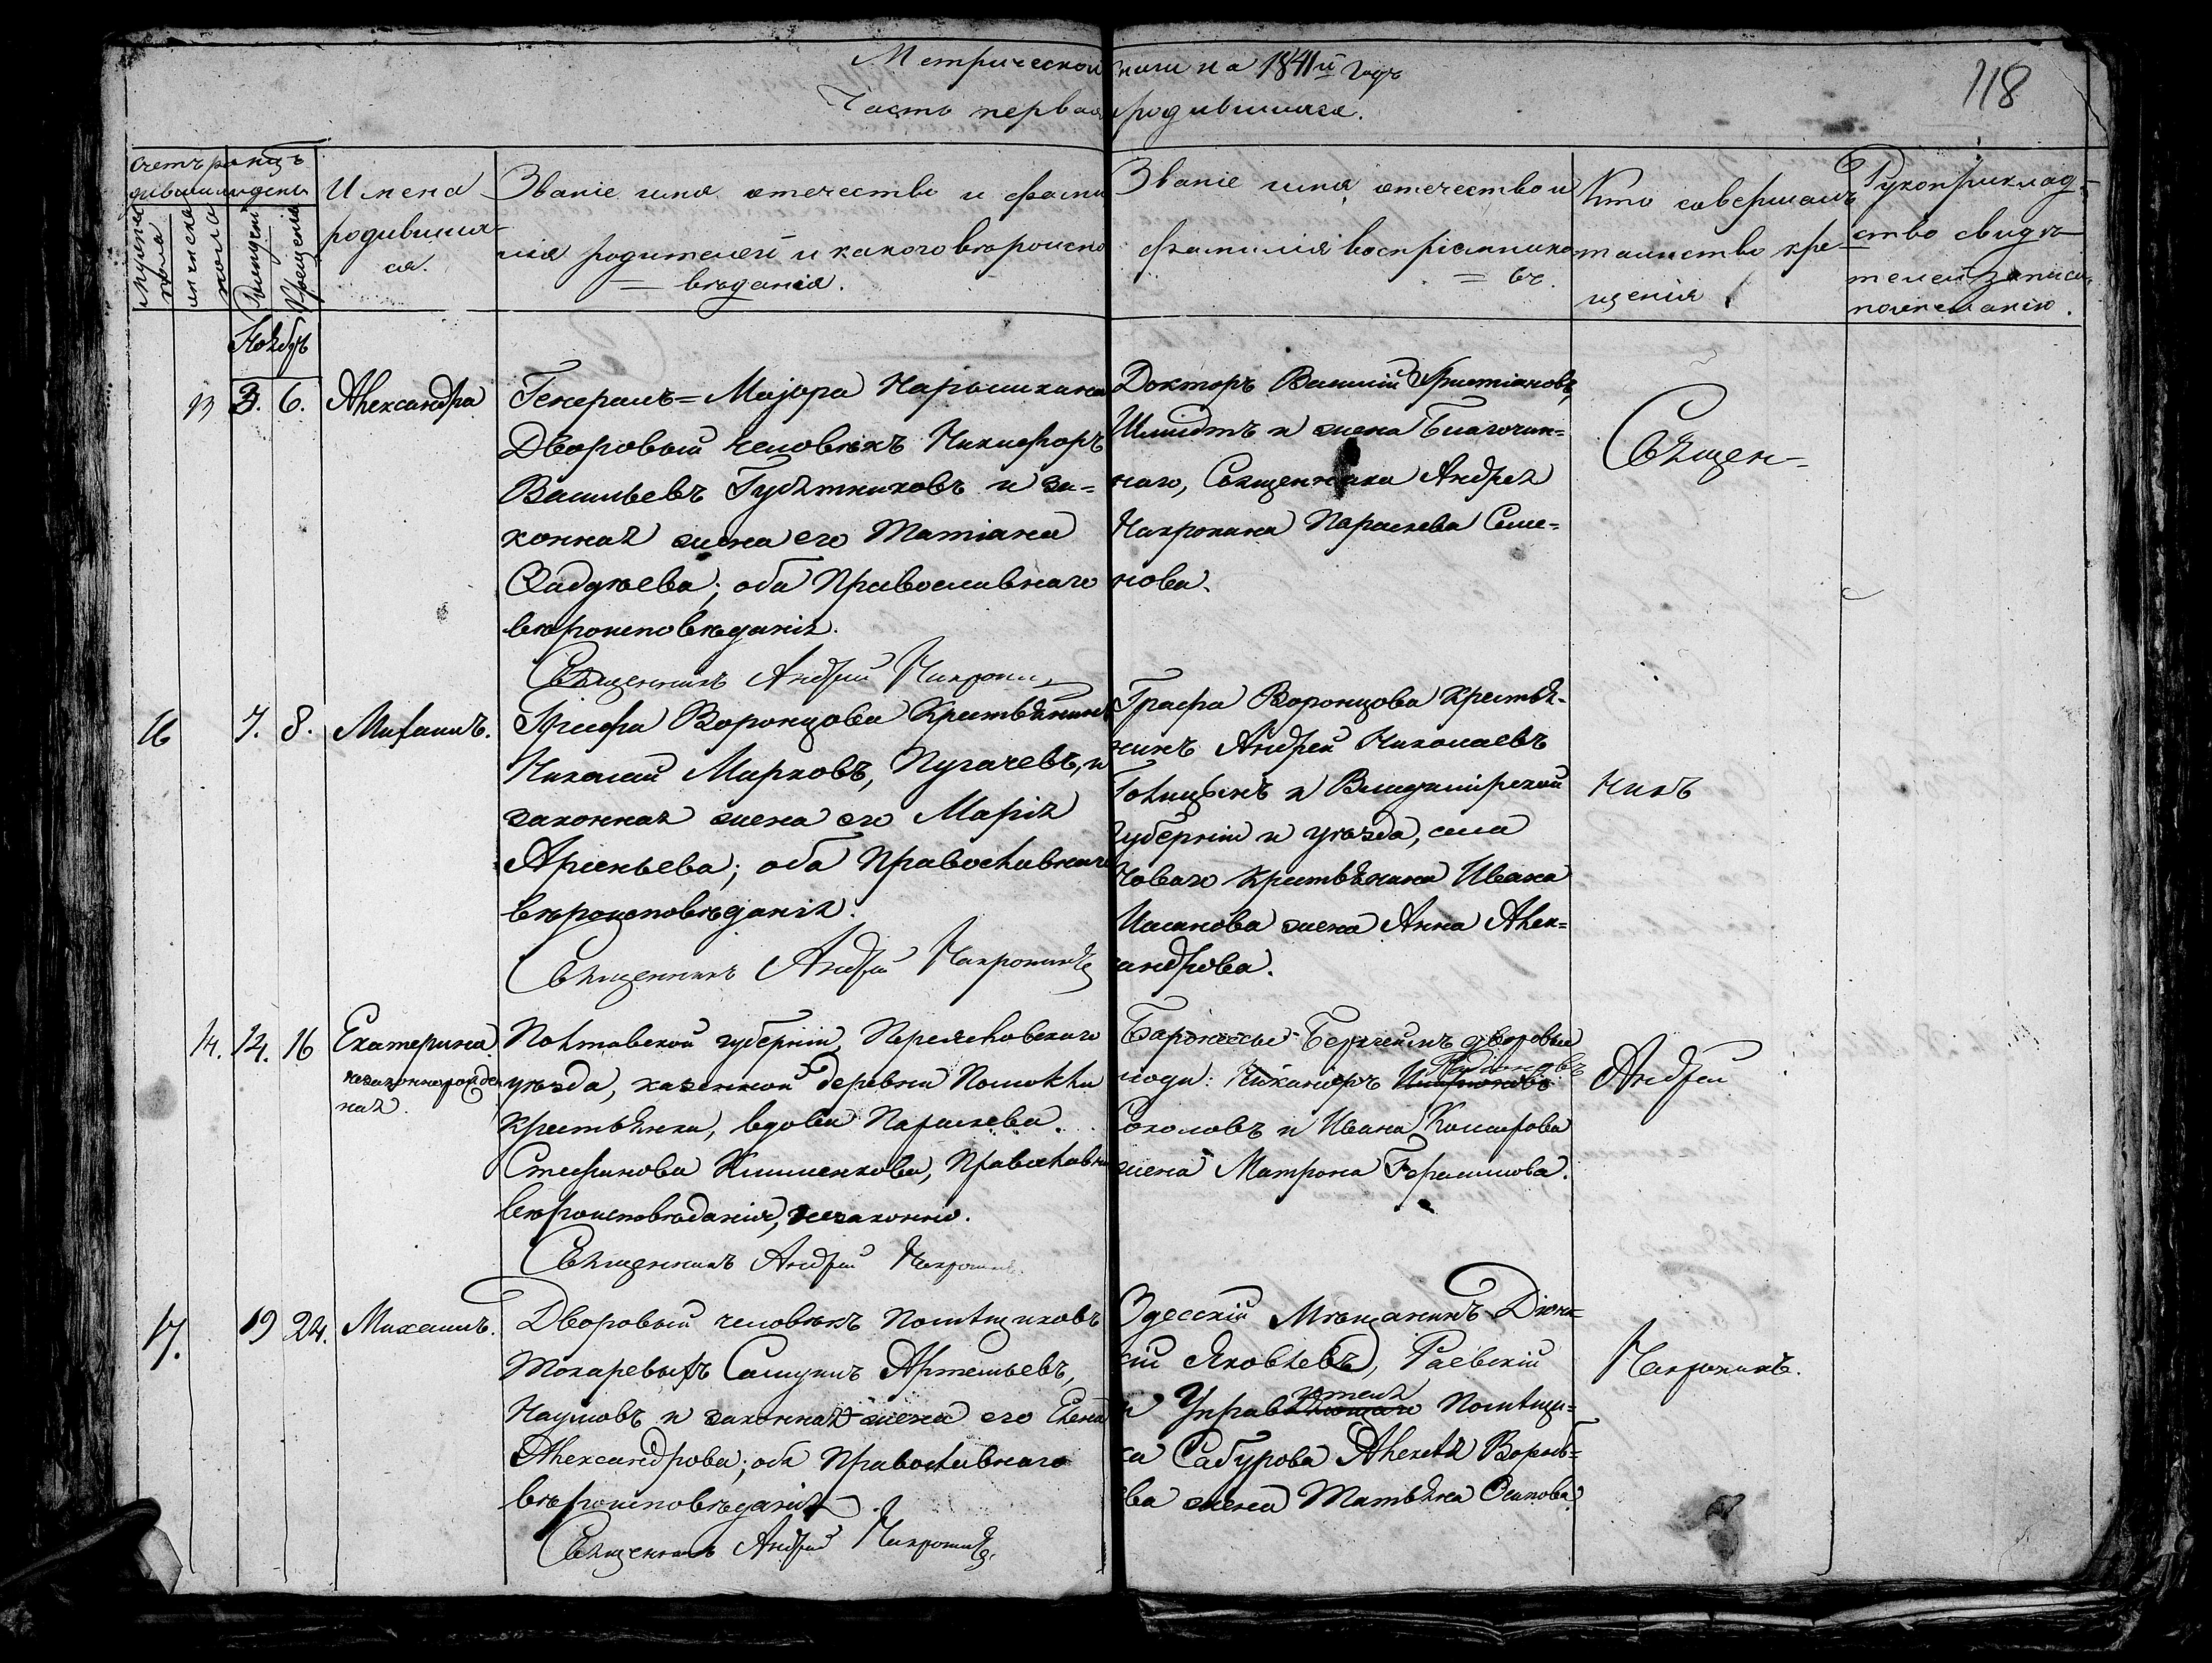 Метрической книги на 1841й годъ
118
Часть первая родившихся.
Счетъ
родившихся
Мужеска
пола
женска
пола
Рожденія
Крещенія
Имена
родивших-
ся.
Званіе имя отечество и фами
лія родителей и какого вѣроиспо
вѣданія.
Званіе имя, отечество и
фамилія воспріемнико
=въ.
Кто совершалъ
таинство кре-
щенія
Рукоприклад-
ство свидѣ-
телей записи
по желанію.
Ноябрь
13 3. 6. Александра
Генералъ=Маіора Нарышкина
Дворовый человѣкъ Никифоръ
Васильевъ и за=
конная жена его Татіана
Фадѣева; оба Православнаго
вѣроисповѣданія.
Священникъ Андрей
Докторъ Василій Христіановъ
Шмидтъ и жена Благочин=
наго, Священника Андрея
Параскева Семе=
нова.
Священ-
16 7. 8. Михаилъ.
Графа Воронцова Крестьянинъ
Николай Марковъ, Пугачевъ, и
законная жена его Марія
Арсеньева; оба Православнаго
вѣроисповѣданія.
Священникъ Андрей
Графа Воронцова Крестья-
нинъ Андрей Николаевъ
и Владимірской
губерніи и уѣзда, села
Новаго Крестьянина Ивана
жена Анна Алек=
сандрова.
никъ
14. 14. 16 Екатерина.
незаконнорожден
ная.
Полтавской губерніи, Переясловскаго
уѣзда, казенной деревни
крестьянки, вдовы Параскева.
Стефанова Православнаго
вѣроисповѣданія, незаконно.
Священникъ Андрей
Баронессы дворовые
люди: Никаноръ Родіоновъ
Соколовъ и Ивана Комарова
жена Матрона Герасимова.
Андрей
17. 19 24. Михаилъ.
Дворовый человѣкъ Помѣщиковъ
Токаревыхъ Самуилъ Артемьевъ,
Наумовъ и законная жена его Елена
Александрова; оба Православнаго
вѣроисповѣданія.
Священникъ Андрей
Одесскій Мѣщанинъ Діони=
сій Яковлевъ, Раевскій
и Управителя Помѣщи=
ка Сабурова Алексѣя Воробь=
ева жена Татьяна Осипова